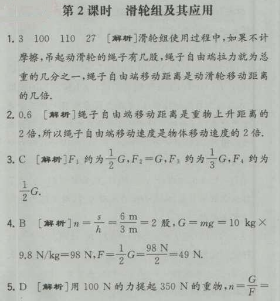 第2课时 滑轮组及其应用
1. 3 100 110 27 [解析]滑轮组使用过程中,如果不计
摩擦,吊起动滑轮的绳子有几股,绳子自由端拉力就为总
重的几分之一,绳子自由端移动距离是动滑轮移动距离
的几倍.
2. 0.6 [解析]绳子自由端移动距离是重物上升距离的
2倍,所以绳子自由端移动速度是物体移动速度的2倍.
3. C [解析]F₁ 约为 1/2 G, F₂=G, F₃ 约为 1/3 G, F₄ 约为
1/2 G.
4. B [解析] n = s/h = 6 m/3 m = 2 股, G = mg = 10 kg ×
9.8 N/kg=98 N, F = 1/2 G = 98 N/2 = 49 N.
5. D [解析]用 100 N 的力提起 350 N 的重物, n = G/F =